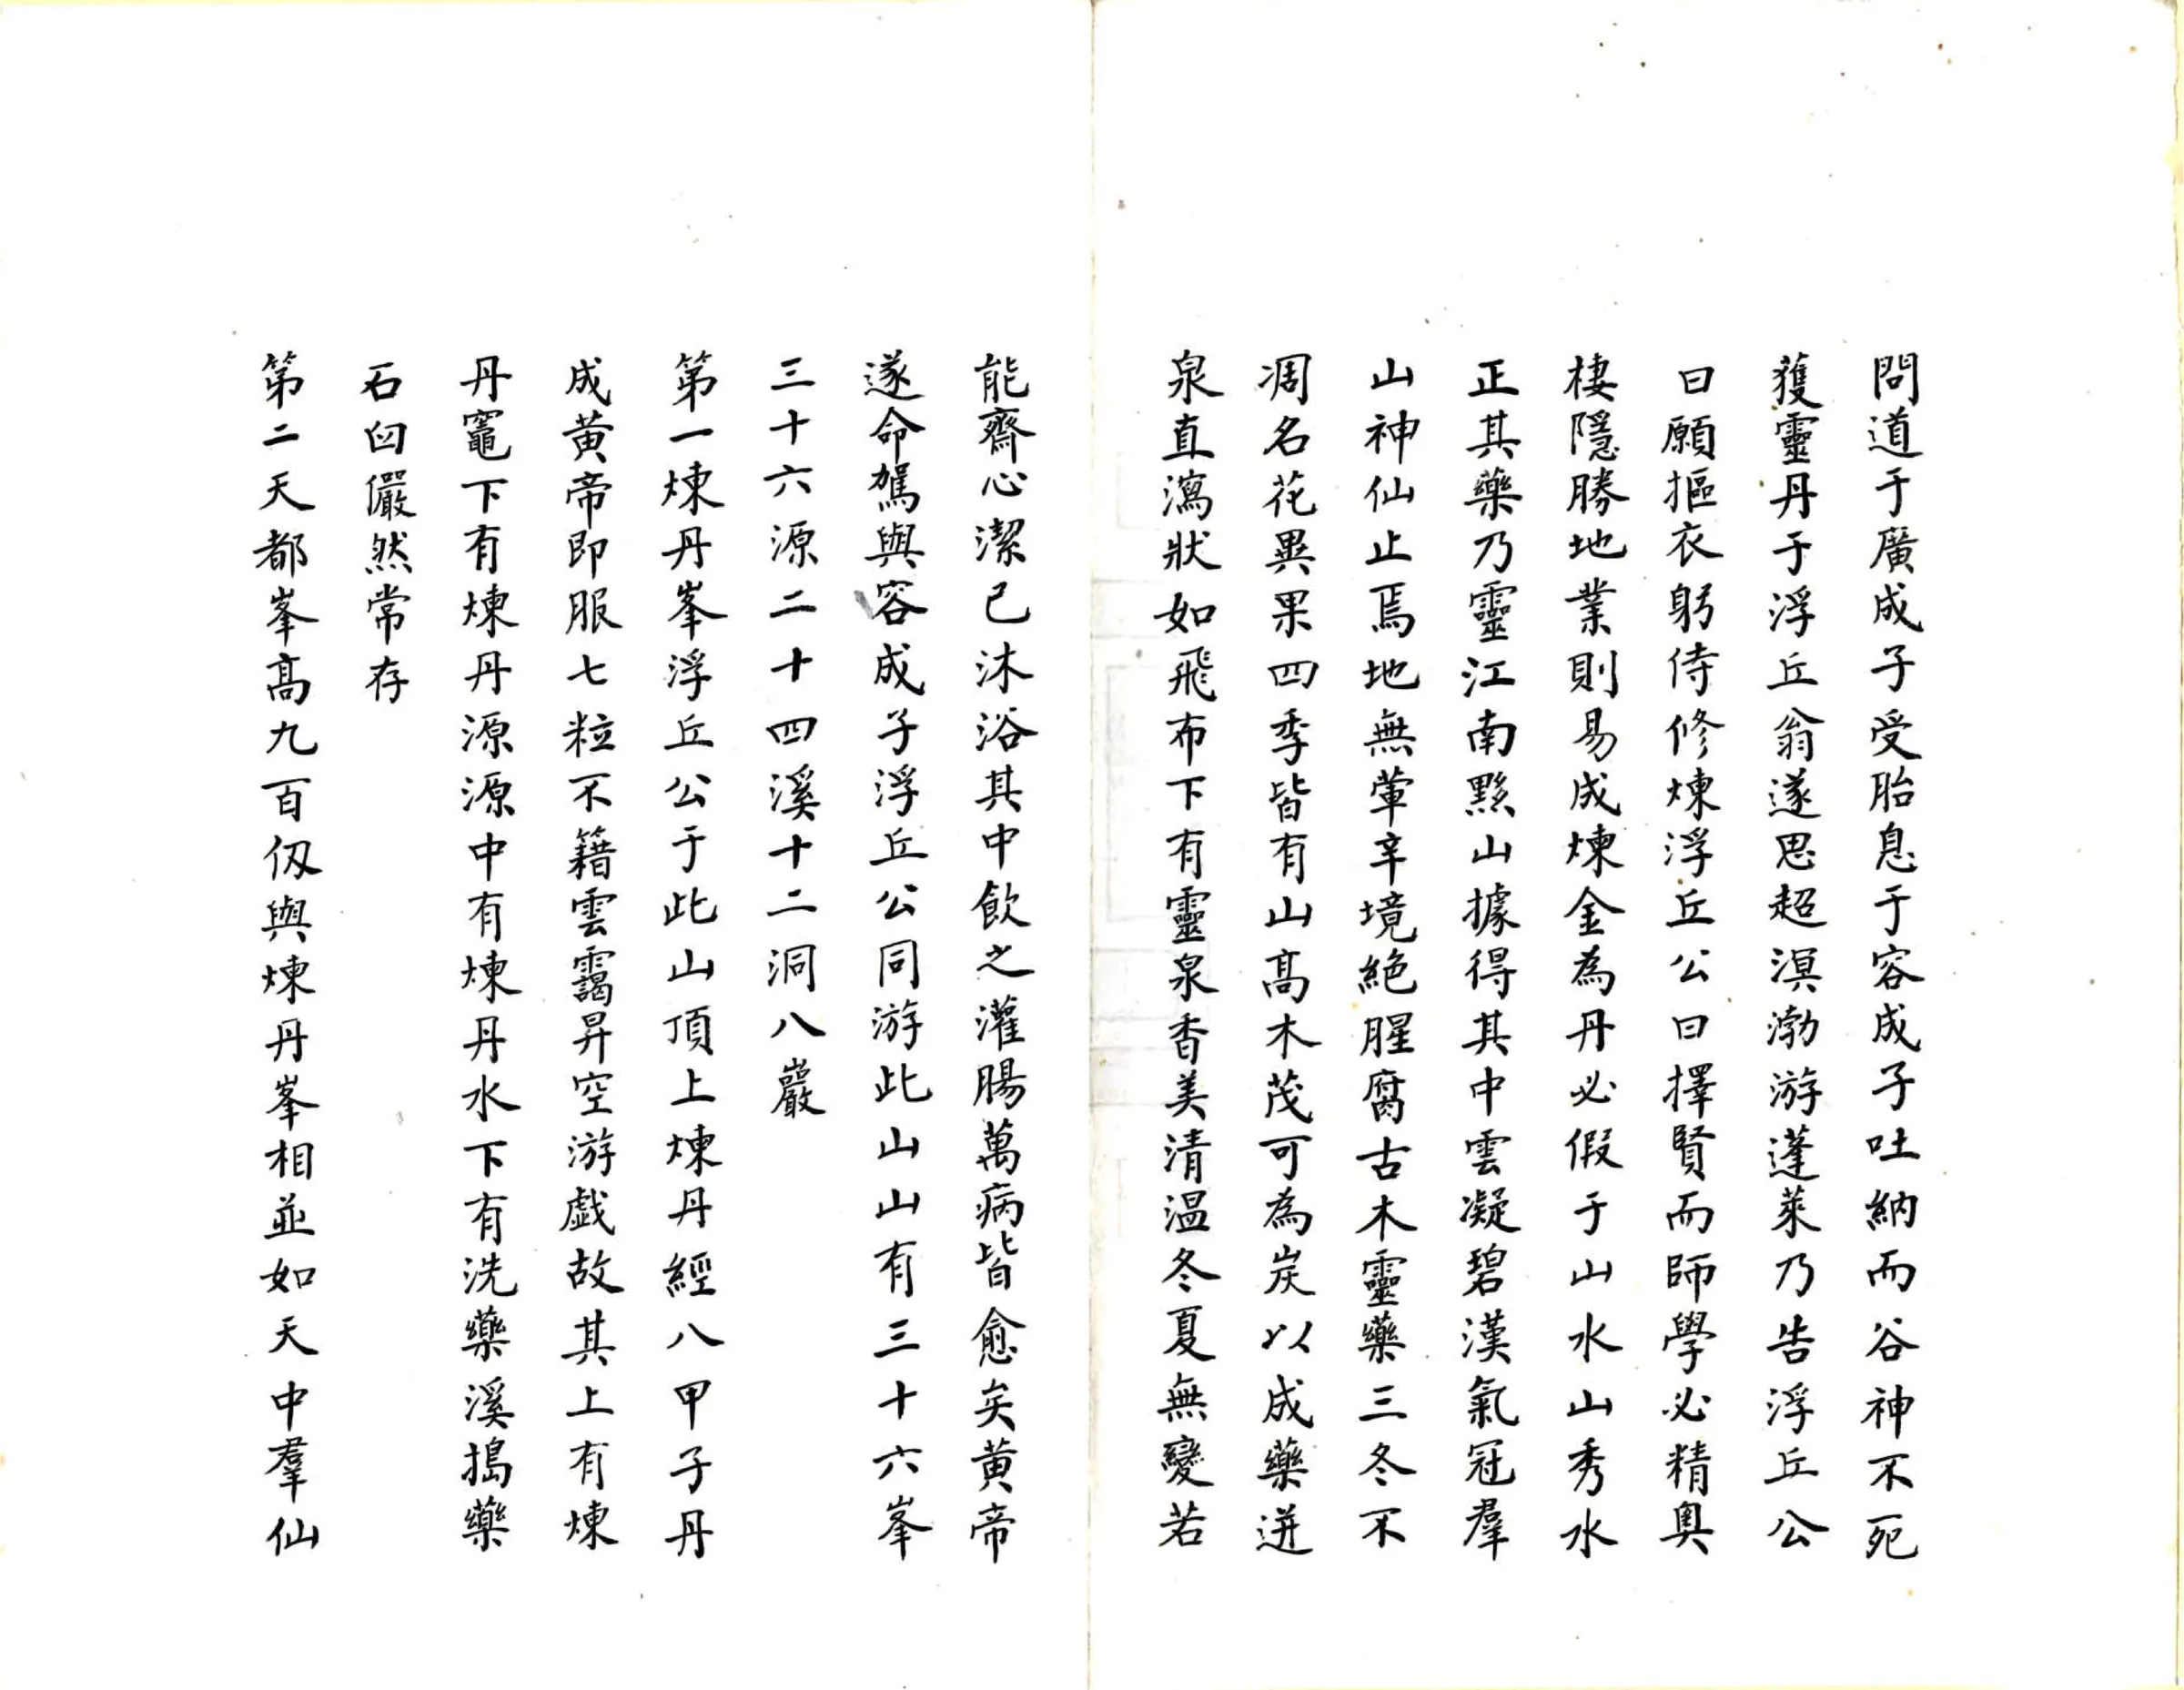 問道于廣成子受胎息于容成子吐納而谷神不死
獲靈丹于浮丘翁遂思超溟渤游蓬萊乃告浮丘公
曰願摳衣躬侍修煉浮丘公曰擇賢而師學必精奧
棲隱勝地業則易成煉金為丹必假于山水山秀水
正其藥乃靈江南黟山據得其中雲凝碧漢氣冠羣
山神仙止焉地無葷辛境絕腥腐古木靈藥三冬不
凋名花異果四季皆有山高木茂可為炭以成藥迸
泉直瀉狀如飛布下有靈泉香美清温冬夏無變若
能齋心潔己沐浴其中飲之灌腸萬病皆愈矣黄帝
遂命駕與容成子浮丘公同游此山山有三十六峯
三十六源二十四溪十二洞八巖
第一煉丹峯浮丘公于此山頂上煉丹經八甲子丹
成黄帝即服七粒不籍雲靄昇空游戲故其上有煉
丹竈下有煉丹源源中有煉丹水下有洗藥溪搗藥
石臼儼然常存
第二天都峯高九百仭與煉丹峯相並如天中羣仙